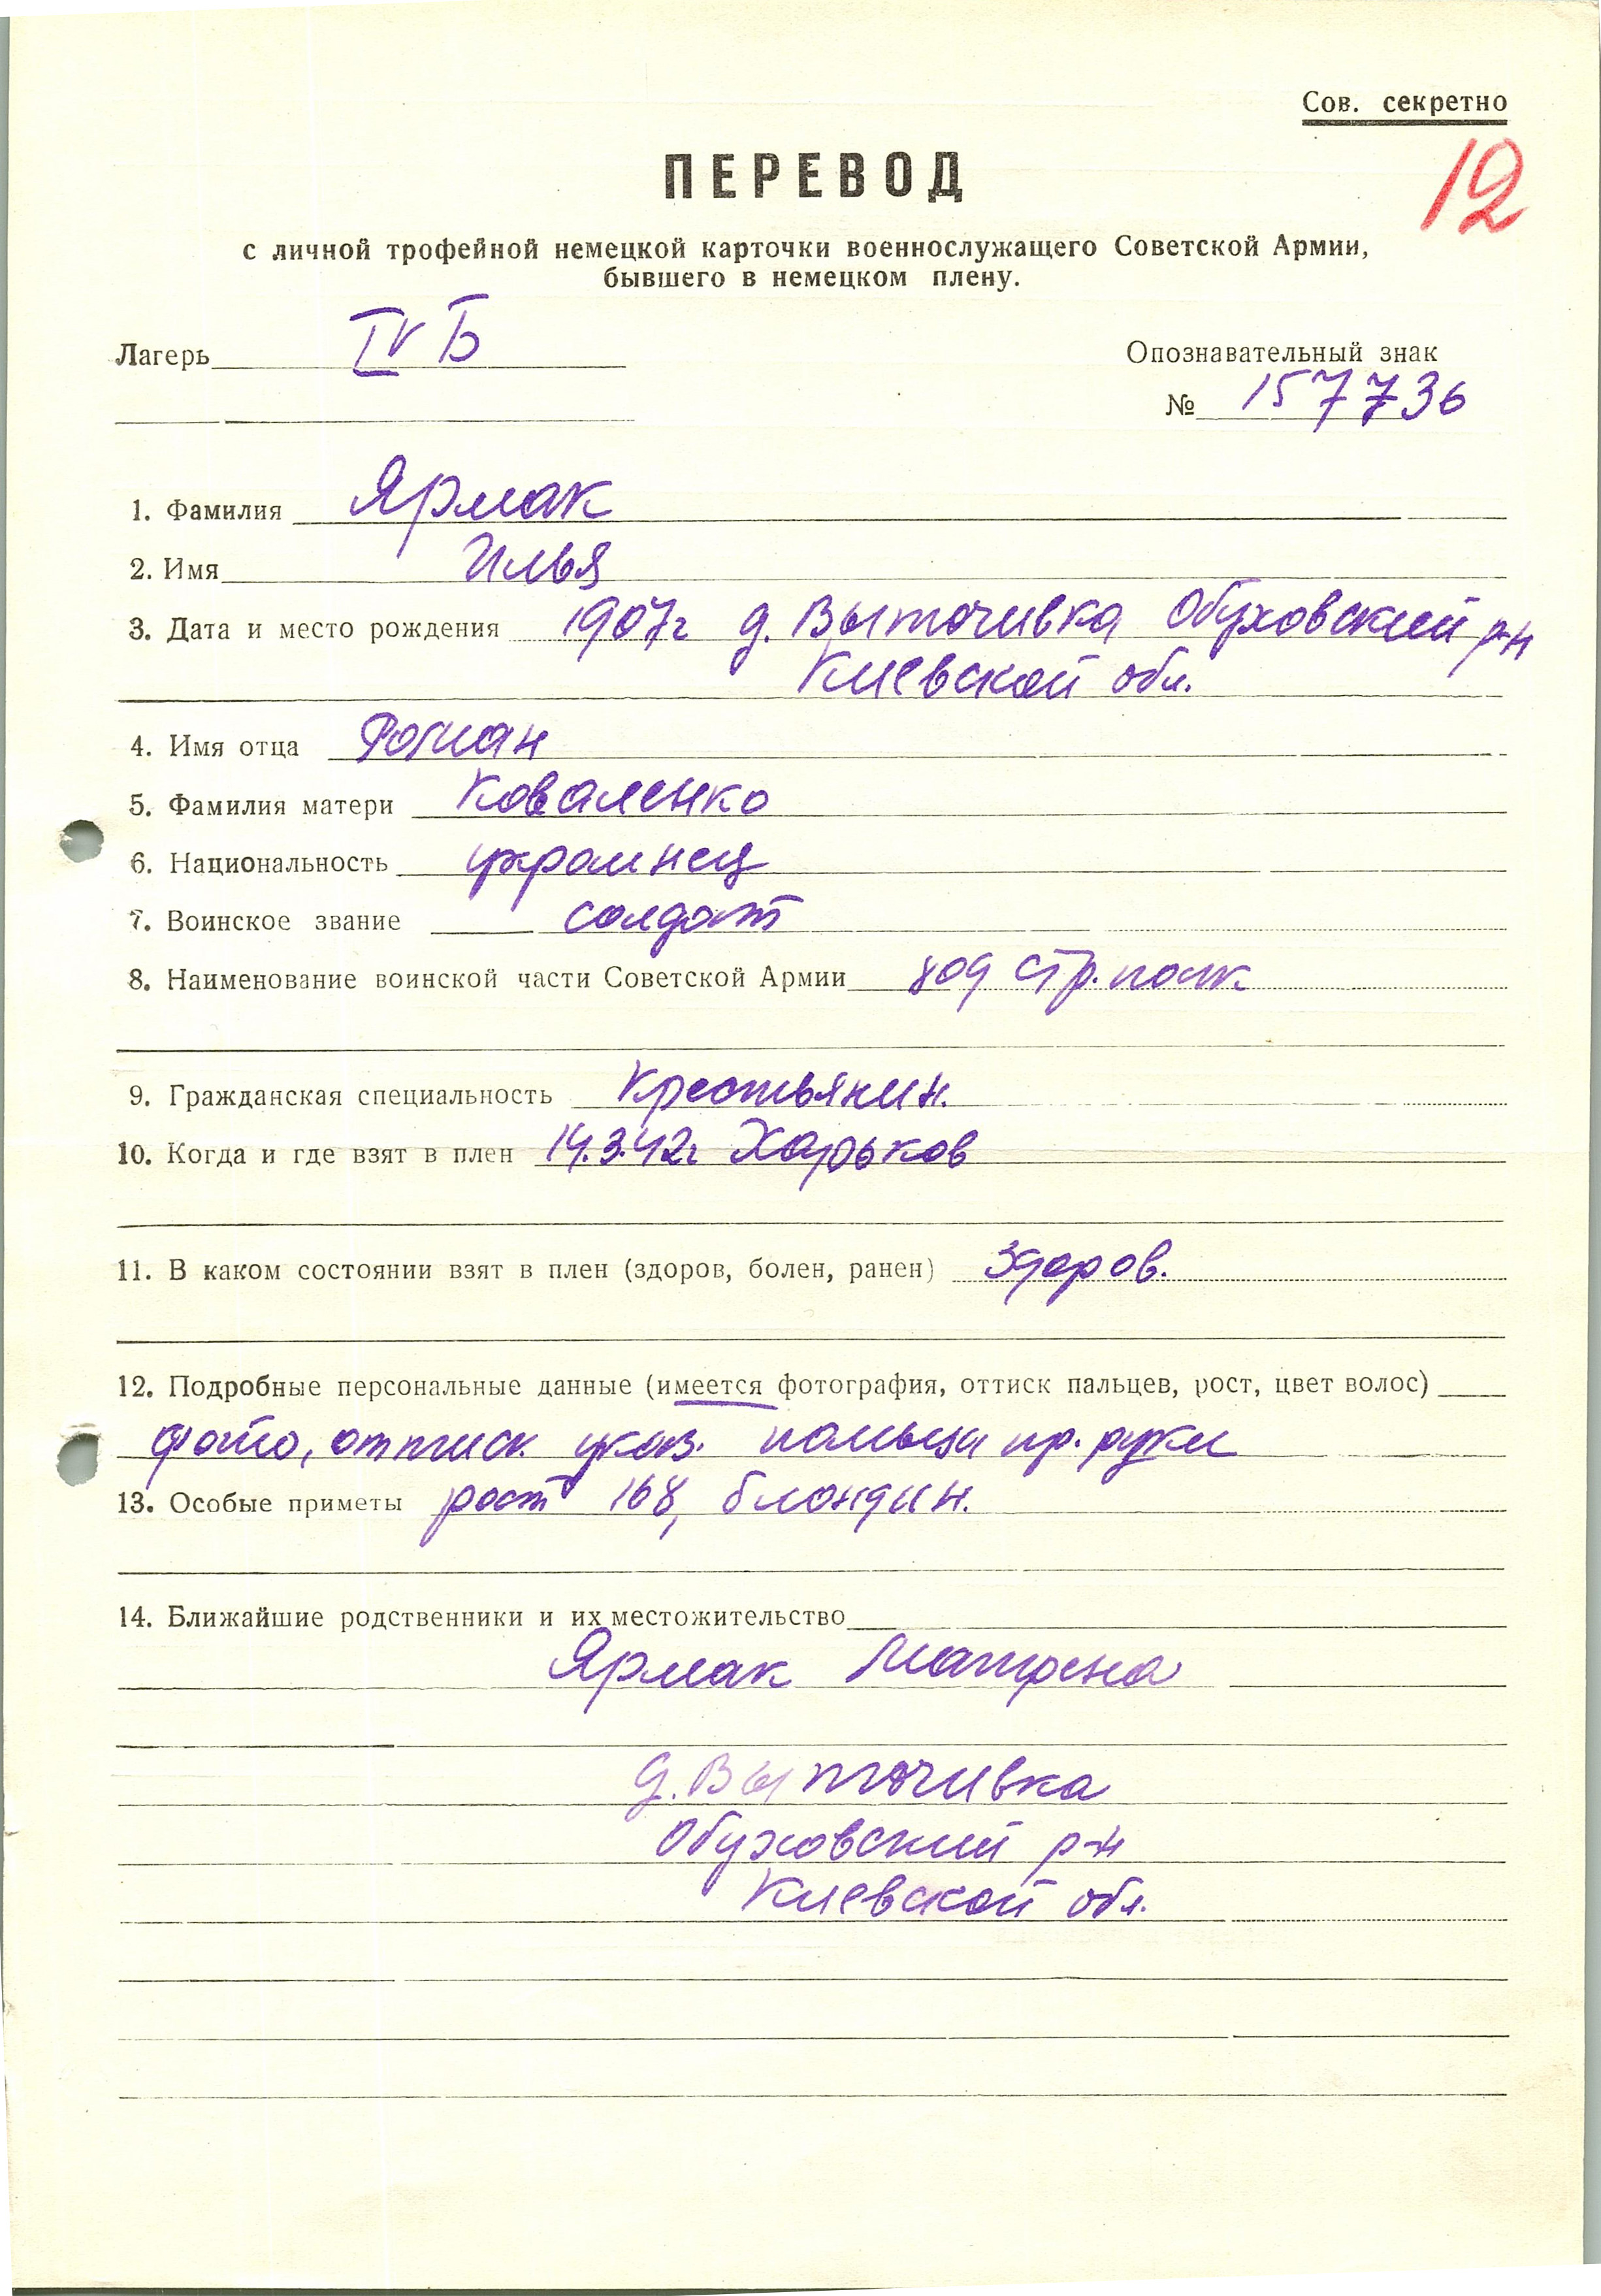 Сов. секретно
12
ПЕРЕВОД
с личной трофейной немецкой карточки военнослужащего Советской Армии,
бывшего в немецком плену.
Лагерь IV Б
Опознавательный знак
№ 157736
1. Фамилия Ярмак
2. Имя Илья
3. Дата и место рождения 1907г д. Выточивка Обуховский р-н
Киевской обл.
4. Имя отца Роман
5. Фамилия матери Коваленко
6. Национальность украинец
7. Воинское звание солдат
8. Наименование воинской части Советской Армии 809 стр. полк
9. Гражданская специальность Крестьянин.
10. Когда и где взят в плен 14.3.42г Харьков
11. В каком состоянии взят в плен (здоров, болен, ранен) Здоров.
12. Подробные персональные данные (имеется фотография, оттиск пальцев, рост, цвет волос)
фото, оттиск указ. пальца пр. руки
13. Особые приметы рост 168, блондин.
14. Ближайшие родственники и их местожительство
Ярмак Матрена
д. Выточивка
Обуховский р-н
Киевской обл.